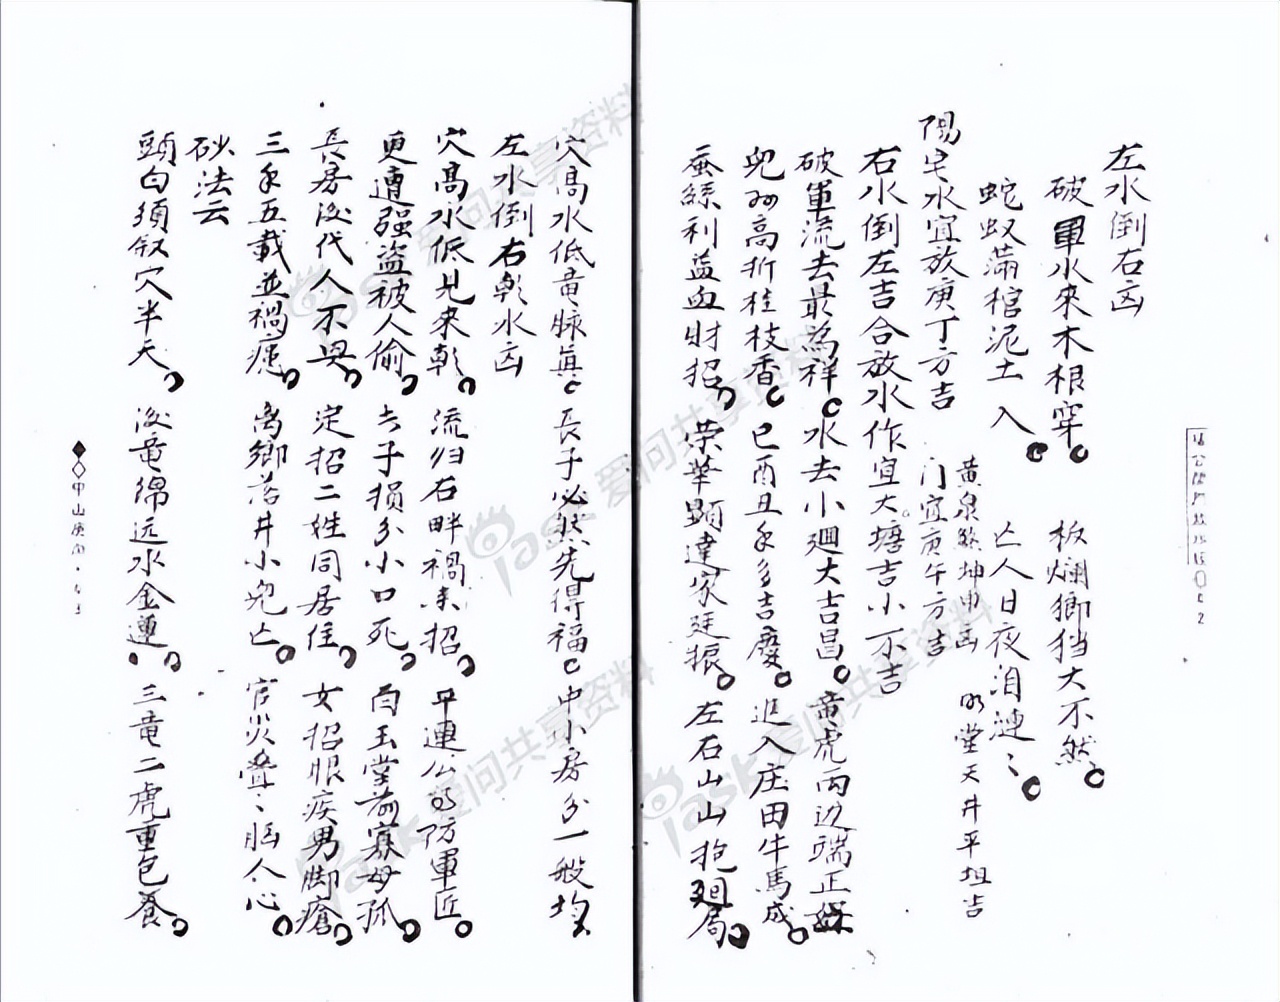 左水倒右凶
破軍水來木根穿。板爛鄉档大不然。
蛇蚁滿棺泥土入。亡人日夜泪漣〻。
黄泉煞坤申凶 明堂天井平坦吉
陽宅水宜放庚丁方吉 门宜庚午方吉
右水倒左吉合放水作宜大塘吉小不吉
破軍流去最為祥。水去小廻大吉昌。竜虎両边端正
兒孙高折桂枝香。巳酉丑年多吉慶。進入庄田牛馬成。
蚕絲利益血财招。荣華顕達家廷振。左右山山抱廻局。
穴高水低竜脉真。長子必然先得福。中小房分一般均
左水倒右乾水凶
穴高水低見來乾。流归右畔禍來招。平連公 防軍匠。
更遭强盗被人偷。去子损分小口死。白玉堂前寡母孤。
長房後代人不興。定招二姓同居住。女招眼疾男脚瘡。
三年五載並禍瘟。离鄉落井小兒亡。官災叠〻 人心。
砂法云
頭白須叙穴半天。後竜綿远水金
三竜二虎重包養。
中山庚向
爱问共享资料
iask